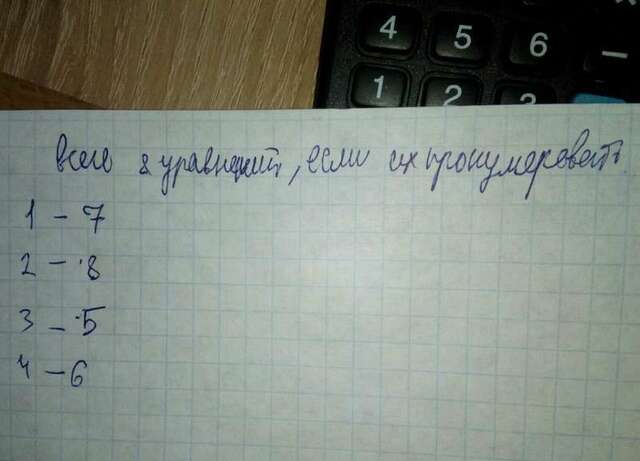 4 5 6 -
1 2 3
всего 8 уравнений, если их пронумеровать
1 - 7
2 - 8
3 - 5
4 - 6